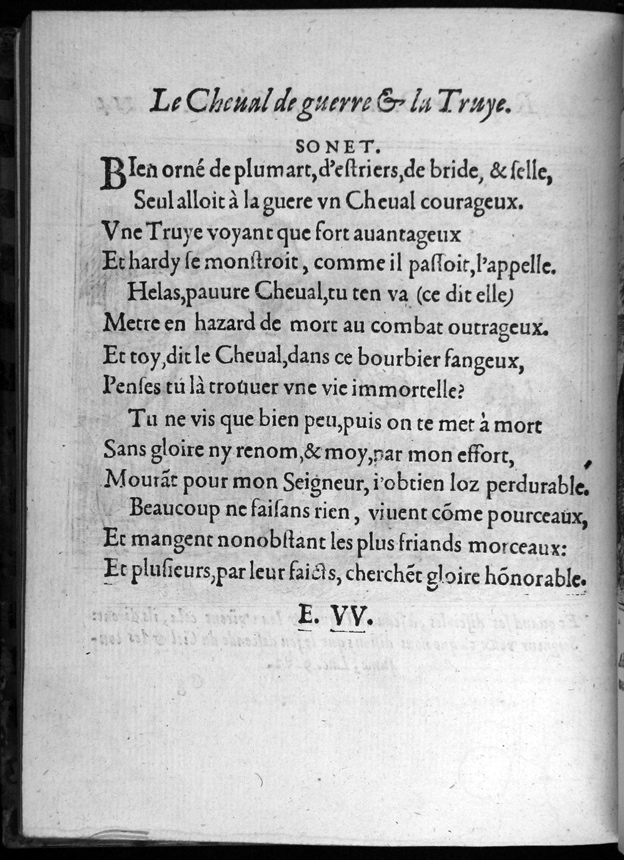 Le Cheual de guerre & la Truye.
SONET.
BIen orné de plumart, d'eſtriers, de bride, & ſelle,
Seul alloit à la guere vn Cheual courageux.
Vne Truye voyant que fort auantageux
Et hardy ſe monſtroit, comme il paſſoit, l'appelle.
Helas, pauure Cheual, tu ten va (ce dit elle)
Metre en hazard de mort au combat outrageux.
Et toy, dit le Cheual, dans ce bourbier fangeux,
Penſes tu là trouuer vne vie immortelle?
Tu ne vis que bien peu, puis on te met à mort
Sans gloire ny renom, & moy, par mon effort,
Mourāt pour mon Seigneur, i'obtien loz perdurable.
Beaucoup ne faiſans rien, viuent cōme pourceaux,
Et mangent nonobſtant les plus friands morceaux:
Et pluſieurs, par leur faicts, cherchēt gloire hōnorable.
E. VV.